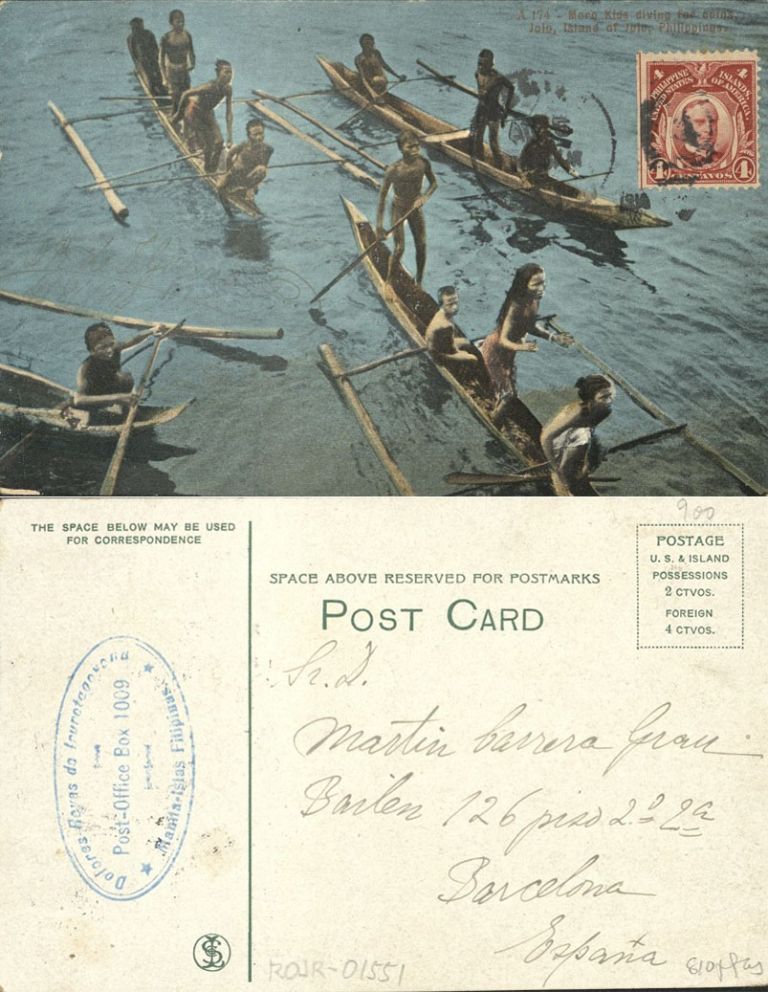 A 174 - Moro Kids diving for coins,
Jolo, Island of Jolo, Philippines.
PHILIPPINE ISLANDS
UNITED STATES OF AMERICA
4 4
4 CENTAVOS 4
THE SPACE BELOW MAY BE USED
FOR CORRESPONDENCE
SPACE ABOVE RESERVED FOR POSTMARKS
POST CARD
900
POSTAGE
U. S. & ISLAND
POSSESSIONS
2 CTVOS.
FOREIGN
4 CTVOS.
Dolores Reyes de
Post-Office Box 1009
Manila-Islas Filipinas
Sr. D.
Martin Barrera Grau
Bailen 126 piso 2.º 2ª
Barcelona
España
ROJR-01551